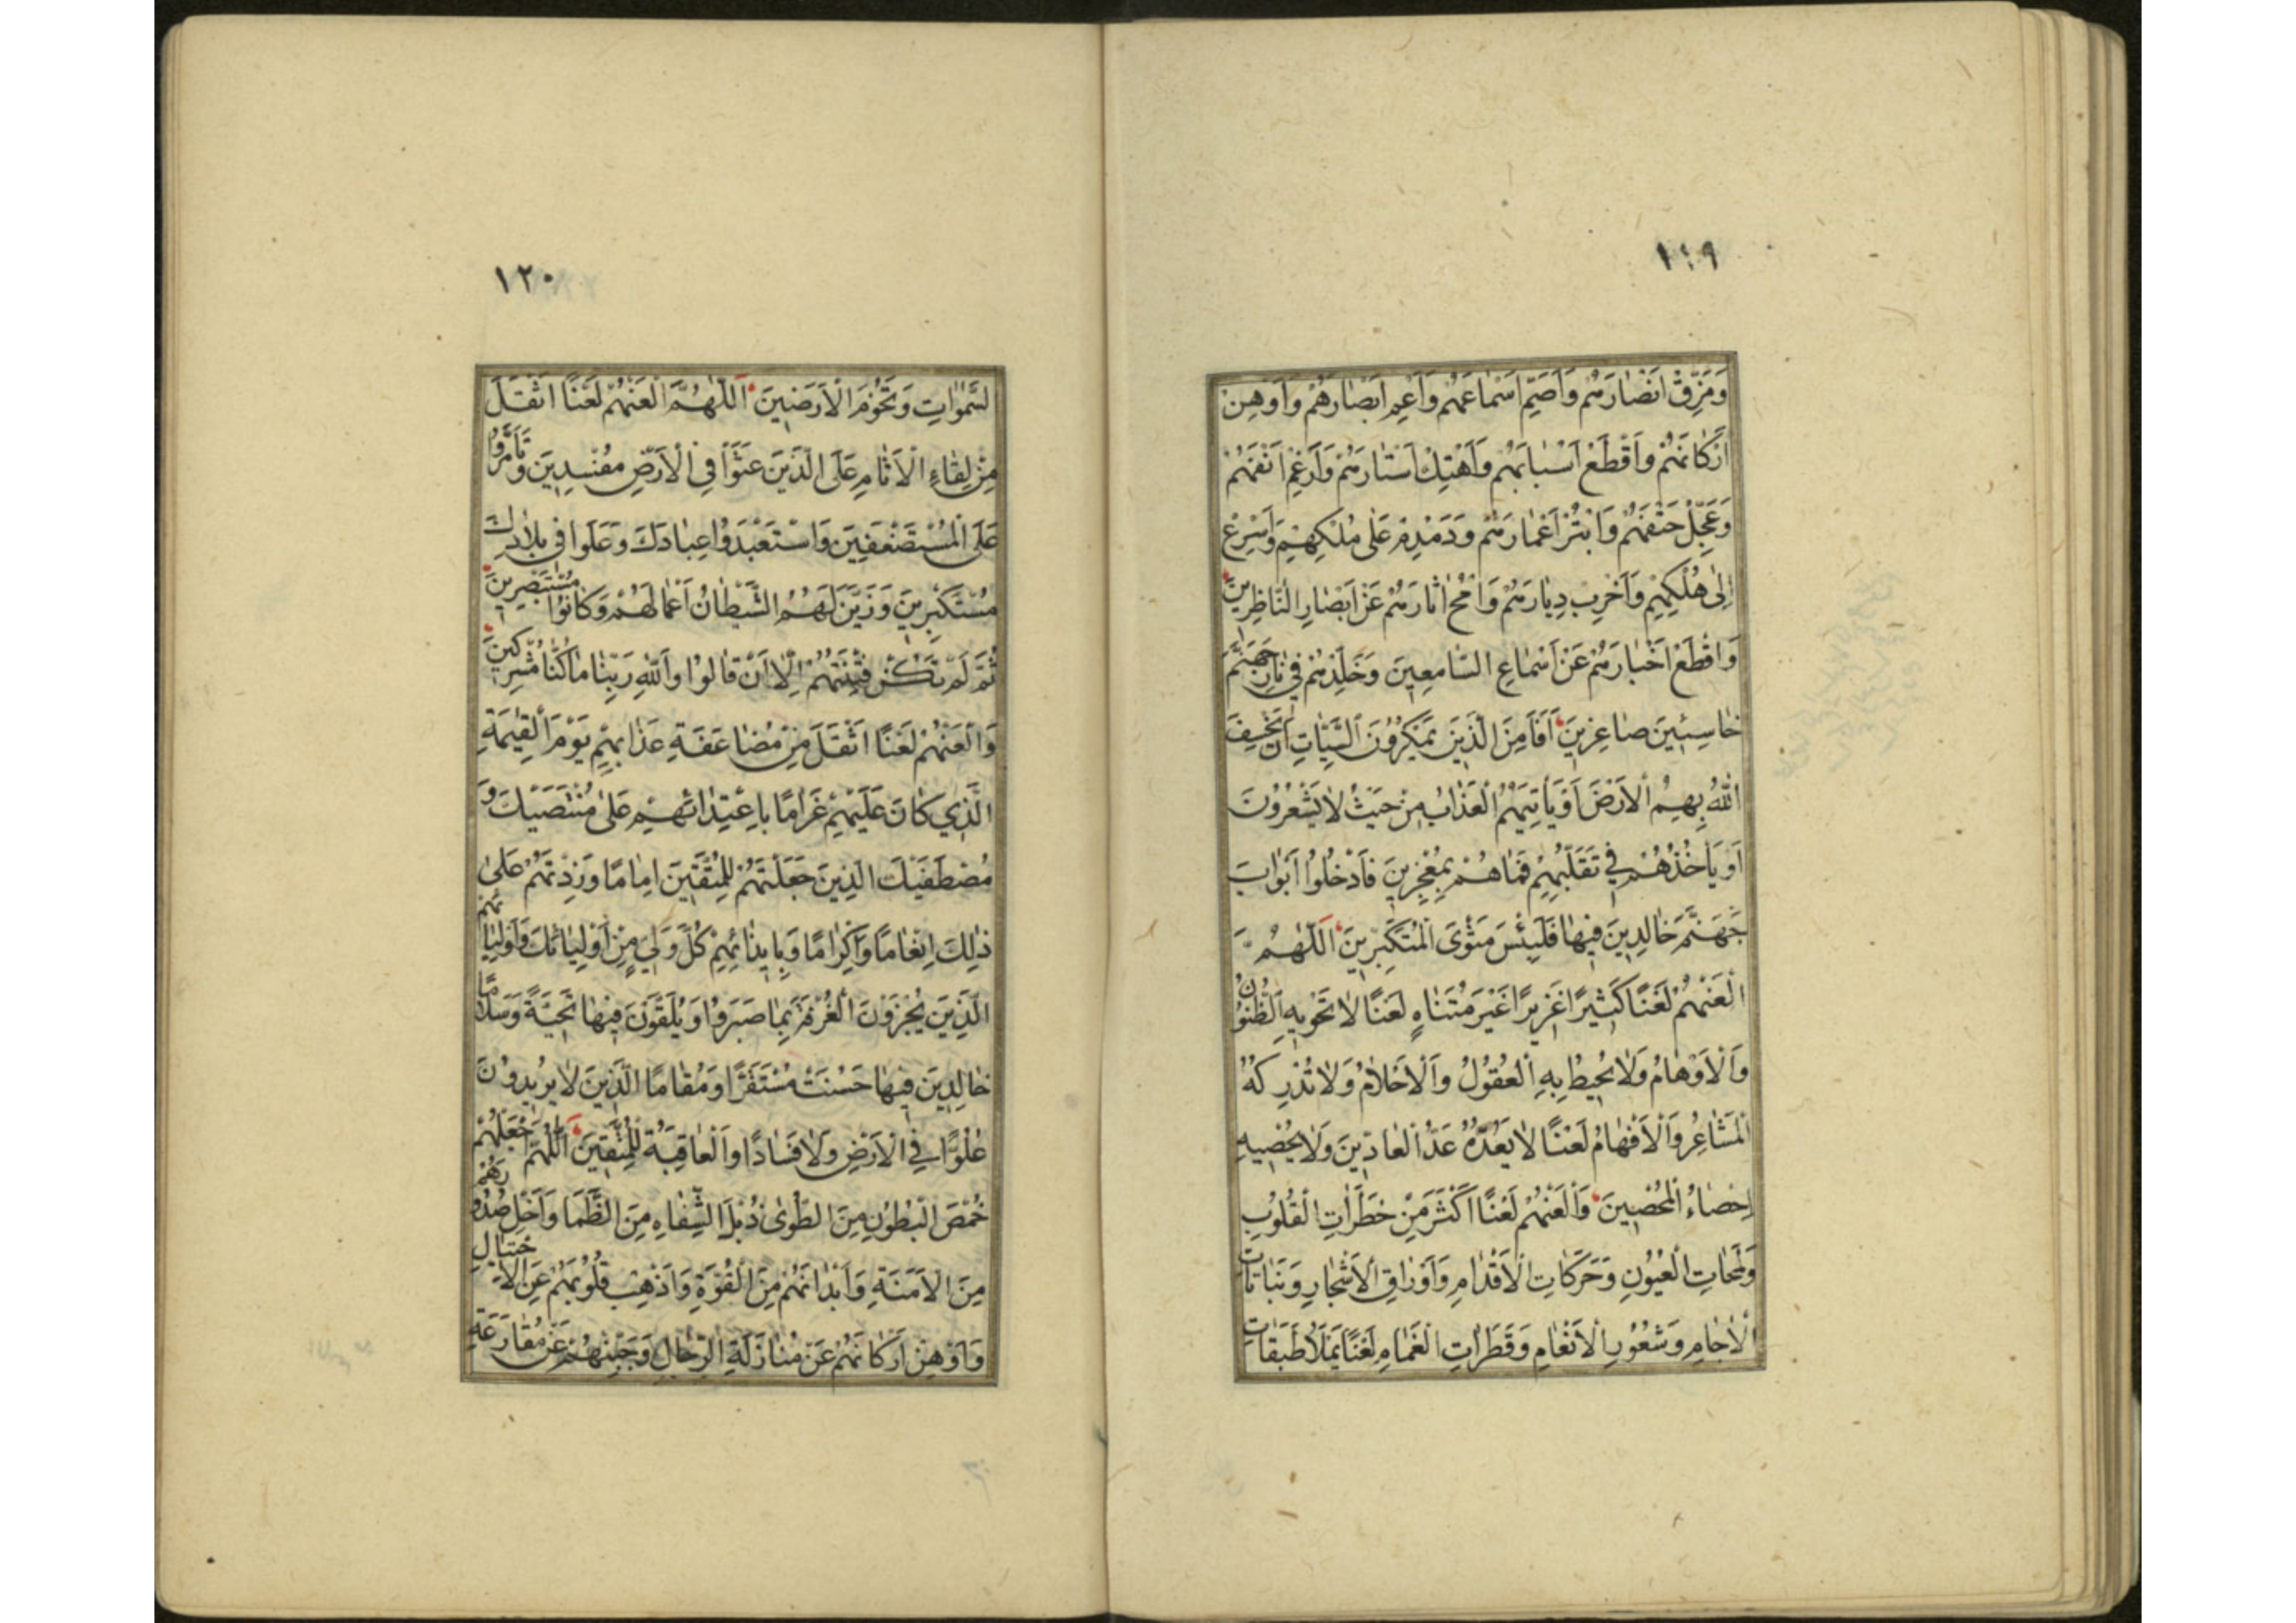 ١١٩
وَمَزِّقْ اَنْصٰارَهُمْ وَاَصَمِّ اَسْمٰاعَهُمْ وَاَعْمِ اَبْصٰارَهُمْ وَاَوْهِنْ
اَرْكٰانَهُمْ وَاَقْطَعْ اَسْبٰابَهُمْ وَاَهْتِكْ اَسْتٰارَهُمْ وَاَرْغِمْ اَنْفَهُمْ
وَعَجِّلْ حَتْفَهُمْ وَابْتُرْ اَعْمٰارَهُمْ وَدَمْدِمْ عَلٰى مُلْكِهِمْ وَاَسْرِعْ
اِلٰى هُلْكِهِمْ وَاَخْرِبْ دِيٰارَهُمْ وَامْحُ اٰثارَهُمْ عَنْ اَبْصٰارِ النّٰاظِرينَ
وَاقْطَعْ اَخْبٰارَهُمْ عَنْ اَسْمٰاعِ السّٰامِعينَ وَخَلِّدْهُمْ فى نٰارِ جَهَنَّمَ
خٰاسِئينَ صٰاغِرينَ اَفَاَمِنَ الَّذينَ يَمْكُرُونَ السَّيِّئٰاتِ اَنْ يَخْسِفَ
اللّٰهُ بِهِمُ الْاَرْضَ اَوْ يَأْتِيَهُمُ الْعَذٰابُ مِنْ حَيْثُ لٰا يَشْعُرُونَ
اَوْ يَاْخُذَهُمْ فى تَقَلُّبِهِمْ فَمٰا هُمْ بِمُعْجِزينَ فَادْخُلُوا اَبْوٰابَ
جَهَنَّمَ خٰالِدينَ فيهٰا فَلَبِئْسَ مَثْوَى الْمُتَكَبِّرينَ اَللّٰهُمَّ
الْعَنْهُمْ لَعْنًا كَثيرًا غَزيرًا غَيْرَ مُتَنٰاهٍ لَعْنًا لٰا تَحْويهِ الظُّنُونُ
وَالْاَوْهٰامُ وَلٰا يُحيطُ بِهِ الْعُقُولُ وَالْاَحْلٰامُ وَلٰا تُدْرِكُهُ
الْمَشٰاعِرُ وَالْاَفْهٰامُ لَعْنًا لٰا يَعُدُّهُ عَدُّ الْعٰادّينَ وَلٰا يُحْصيهِ
اِحْصٰاءُ الْمُحْصينَ وَالْعَنْهُمْ لَعْنًا اَكْثَرَ مِنْ خَطَرٰاتِ الْقُلُوبِ
وَلَمَحٰاتِ الْعُيُونِ وَحَرَكٰاتِ الْاَقْدٰامِ وَاَوْرٰاقِ الْاَشْجٰارِ وَنَبٰاتٰاتِ
الْاٰجٰامِ وَشُعُورِ الْاَنْعٰامِ وَقَطَرٰاتِ الْغَمٰامِ لَعْنًا يَمْلَاُ طَبَقٰاتِ
١٢٠
السَّمٰوٰاتِ وَتُخُومَ الْاَرَضينَ اَللّٰهُمَّ الْعَنْهُمْ لَعْنًا اَثْقَلَ
مِنْ لِقٰاءِ الْاَثٰامِ عَلَى الَّذينَ عَثَوْا فِى الْاَرْضِ مُفْسِدينَ وَتَأَمَّرُوا
عَلَى الْمُسْتَضْعَفينَ وَاسْتَعْبَدُوا عِبٰادَكَ وَعَلَوْا فى بِلٰادِكَ
مُسْتَكْبِرينَ وَزَيَّنَ لَهُمُ الشَّيْطٰانُ اَعْمٰالَهُمْ وَكٰانُوا مُسْتَبْصِرينَ
ثُمَّ لَمْ تَكُنْ فِتْنَتُهُمْ اِلّٰا اَنْ قٰالُوا وَاللّٰهِ رَبِّنٰا مٰا كُنّٰا مُشْرِكينَ
وَالْعَنْهُمْ لَعْنًا اَثْقَلَ مِنْ مُضٰاعَفَةِ عَذٰابِهِمْ يَوْمَ الْقِيٰمَةِ
الَّذي كٰانَ عَلَيْهِمْ غَرٰامًا بِاعْتِدٰائِهِمْ عَلٰى مُنْتَصَبيكَ وَ
مُصْطَفَيْكَ الَّذينَ جَعَلْتَهُمْ لِلْمُتَّقينَ اِمٰامًا وَزِدْتَهُمْ عَلٰى
ذٰلِكَ اِنْعٰامًا وَاِكْرٰامًا وَبِايذٰائِهِمْ كُلَّ وَلِيٍّ مِنْ اَوْلِيٰائِكَ وَاَوْلِيٰائِهِمْ
الَّذينَ يُجْزَوْنَ الْغُرْفَةَ بِمٰا صَبَرُوا وَيُلَقَّوْنَ فيهٰا تَحِيَّةً وَسَلٰامًا
خٰالِدينَ فيهٰا حَسُنَتْ مُسْتَقَرًّا وَمُقٰامًا الَّذينَ لٰا يُريدُونَ
عُلُوًّا فِى الْاَرْضِ وَلٰا فَسٰادًا وَالْعٰاقِبَةُ لِلْمُتَّقينَ اَللّٰهُمَّ اجْعَلْهُمْ
خُمْصَ الْبُطُونِ مِنَ الطَّوىٰ ذُبْلَ الشِّفٰاهِ مِنَ الظَّمَا وَاَخْلِ صُدُورَهُمْ
مِنَ الْاَمَنَةِ وَاَبْدٰانَهُمْ مِنَ الْقُوَّةِ وَاَذْهِبْ قُلُوبَهُمْ عَنِ الْاِحْتِيٰالِ
وَاَوْهِنْ اَرْكٰانَهُمْ عَنْ مُنٰازَلَةِ الرِّجٰالِ وَجَبِّنْهُمْ عَنْ مُقٰارَعَةِ